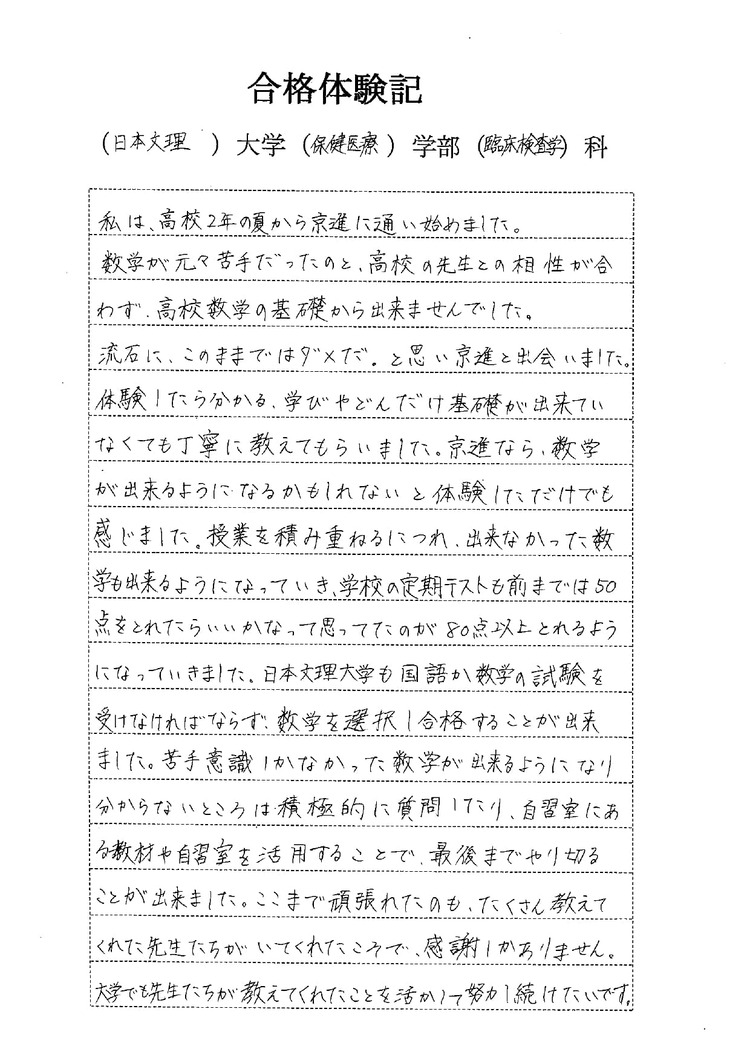 合格体験記
(日本文理) 大学 (保健医療) 学部 (臨床検査学) 科
私は、高校2年の夏から京進に通い始めました。
数学が元々苦手だったのと、高校の先生との相性が合
わず、高校数学の基礎から出来ませんでした。
流石に、このままではダメだ。と思い京進と出会いました。
体験したら分かる、学びやどんだけ基礎が出来てい
なくても丁寧に教えてもらいました。京進なら、数学
が出来るようになるかもしれないと体験しただけでも
感じました。授業を積み重ねるにつれ、出来なかった数
学も出来るようになっていき、学校の定期テストも前までは50
点をとれたらいいかなって思ってたのが80点以上とれるよう
になっていきました。日本文理大学も国語か数学の試験を
受けなければならず、数学を選択し合格することが出来
ました。苦手意識しかなかった数学が出来るようになり
分からないところは積極的に質問したり、自習室にあ
る教材や自習室を活用することで、最後までやり切る
ことが出来ました。ここまで頑張れたのも、たくさん教えて
くれた先生たちがいてくれたころで、感謝しかありません。
大学でも先生たちが教えてくれたことを活かして努力し続けたいです。